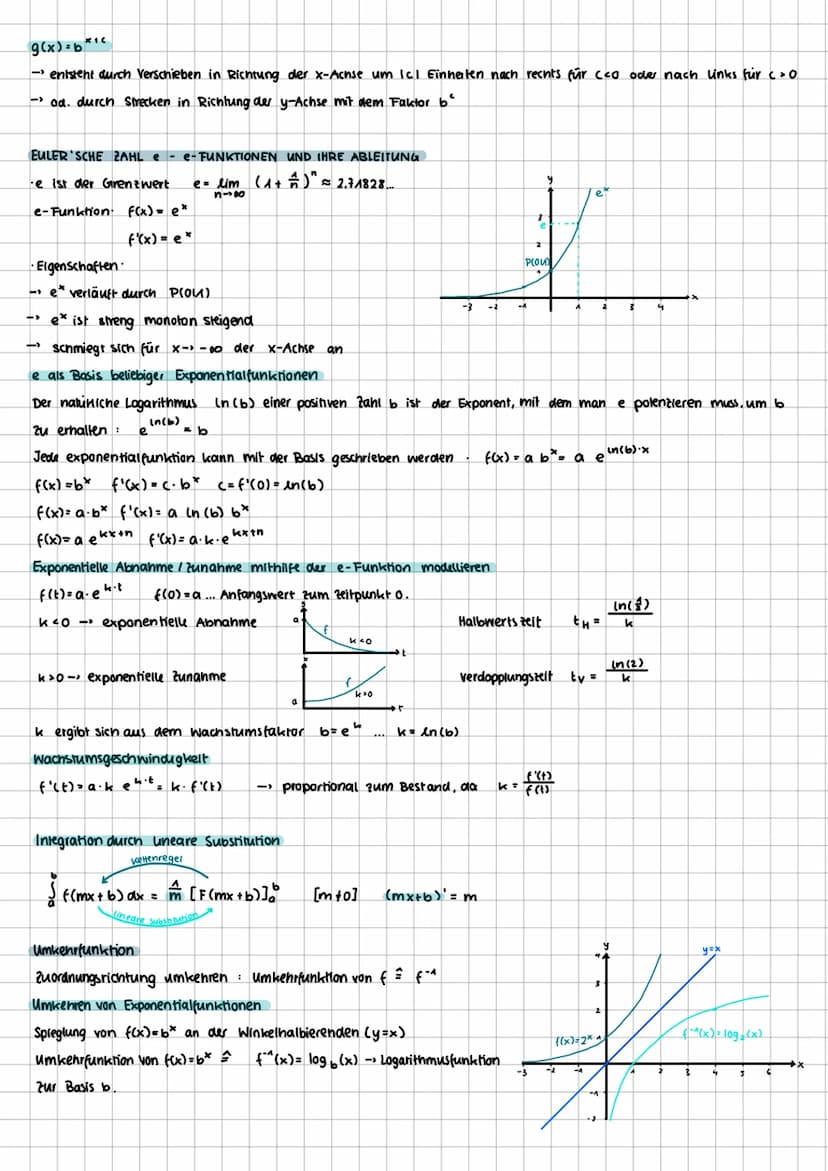 g(x) = b^(x+c)
→ entsteht durch Verschieben in Richtung der x-Achse um |c| Einheiten nach rechts für c<0 oder nach links für c>0
→ od. durch Strecken in Richtung der y-Achse mit dem Faktor b^c
EULER'SCHE ZAHL e - e-FUNKTIONEN UND IHRE ABLEITUNG
· e ist der Grenzwert e = lim n→∞ (1 + 1/n)^n ≈ 2.71828...
e-Funktion· f(x) = e^x
f'(x) = e^x
· Eigenschaften ·
→ e^x verläuft durch P(0|1)
→ e^x ist streng monoton steigend
→ schmiegt sich für x→ -∞ der x-Achse an
y
e^x
3
e
2
P(0|1)
1
-3 -2 -1 1 2 3 4 x
e als Basis beliebiger Exponentialfunktionen
Der natürliche Logarithmus ln(b) einer positiven Zahl b ist der Exponent, mit dem man e potenzieren muss, um b
zu erhalten : e^(ln(b)) = b
Jede exponentialfunktion kann mit der Basis geschrieben werden · f(x) = a b^x = a e^(ln(b)·x)
f(x) = b^x f'(x) = c · b^x c = f'(0) = ln(b)
f(x) = a · b^x f'(x) = a ln(b) b^x
f(x) = a e^(kx+n) f'(x) = a · k · e^(kx+n)
Exponentielle Abnahme / Zunahme mithilfe der e-Funktion modellieren
f(t) = a · e^(k·t) f(0) = a ... Anfangswert zum Zeitpunkt 0.
k<0 → exponentielle Abnahme
a f k<0 t
Halbwertszeit t_H = ln(1/2)/k
k>0 → exponentielle Zunahme
a f k>0 t
Verdopplungszeit t_V = ln(2)/k
k ergibt sich aus dem Wachstumsfaktor b = e^k ... k = ln(b)
Wachstumsgeschwindigkeit
f'(t) = a · k e^(k·t) = k · f'(t) → proportional zum Bestand, da k = f'(t)/f(t)
Integration durch Lineare Substitution
Kettenregel
∫_a^b f(mx + b) dx = 1/m [F(mx + b)]_a^b [m≠0] (mx+b)' = m
Lineare Substitution
Umkehrfunktion
Zuordnungsrichtung umkehren : Umkehrfunktion von f ≙ f^-1
Umkehren von Exponentialfunktionen
Spieglung von f(x) = b^x an der Winkelhalbierenden (y=x)
Umkehrfunktion von f(x) = b^x ≙ f^-1(x) = log_b(x) → Logarithmusfunktion
zur Basis b.
y
y=x
4
3
2
f(x)=2^x 1
f^-1(x) = log_2(x)
-3 -2 -1 1 2 3 4 5 6 x
-1